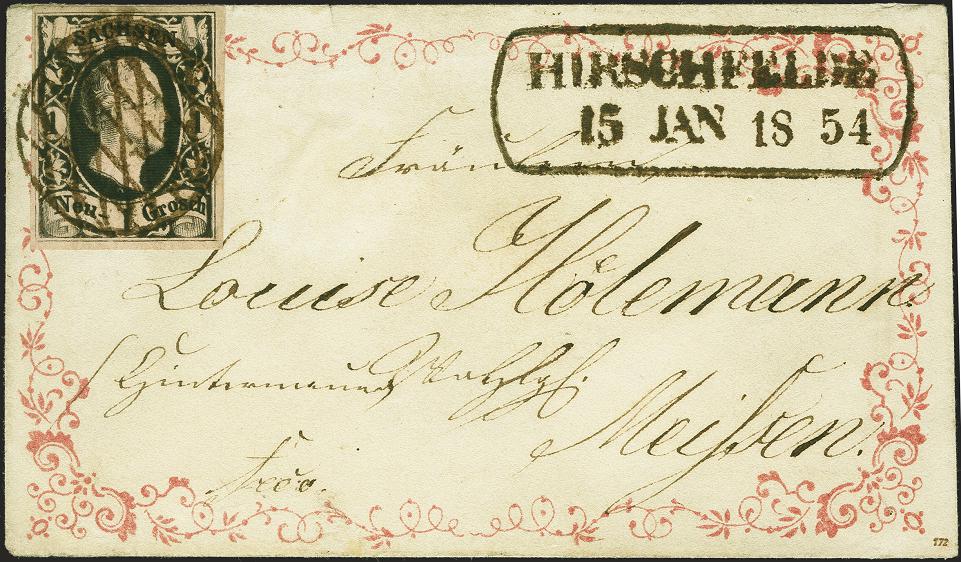 SACHSEN
1 1
Neu- Grosch
HIRSCHFELDE
15 JAN 18 54
Fräulein
Louise Hölemann.
Meißen.
Frco.
172